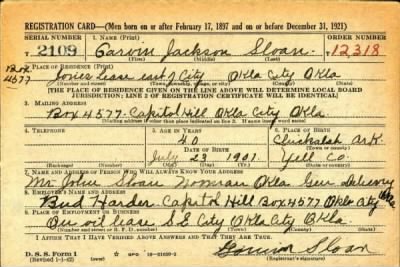 REGISTRATION CARD—(Men born on or after February 17, 1897 and on or before December 31, 1921)
SERIAL NUMBER 1. NAME (Print) ORDER NUMBER
T 2109 Garvin Jackson Sloan 12,318
(First) (Middle) (Last)
2. PLACE OF RESIDENCE (Print)
Box 4577 Jones lease east of City Okla City Okla
[THE PLACE OF RESIDENCE GIVEN ON THE LINE ABOVE WILL DETERMINE LOCAL BOARD
JURISDICTION; LINE 2 OF REGISTRATION CERTIFICATE WILL BE IDENTICAL]
3. MAILING ADDRESS
Box 4577 - Capitol Hill Okla City Okla
4. TELEPHONE 5. AGE IN YEARS 6. PLACE OF BIRTH
40 Chickalah Ark.
DATE OF BIRTH (Town or county)
July 23 1901 Yell Co.
(Exchange) (Number) (Mo.) (Day) (Yr.) (State or country)
7. NAME AND ADDRESS OF PERSON WHO WILL ALWAYS KNOW YOUR ADDRESS
Mr. John Sloan Norman Okla Gen Delivery
8. EMPLOYER'S NAME AND ADDRESS
Bud Harder Capitol Hill Box 4577 Okla City Okla
9. PLACE OF EMPLOYMENT OR BUSINESS
On oil lease S E City Okla City Okla
I AFFIRM THAT I HAVE VERIFIED ABOVE ANSWERS AND THAT THEY ARE TRUE.
D. S. S. Form 1
(Revised 1-1-42) GPO 16-21630-2 Sloan